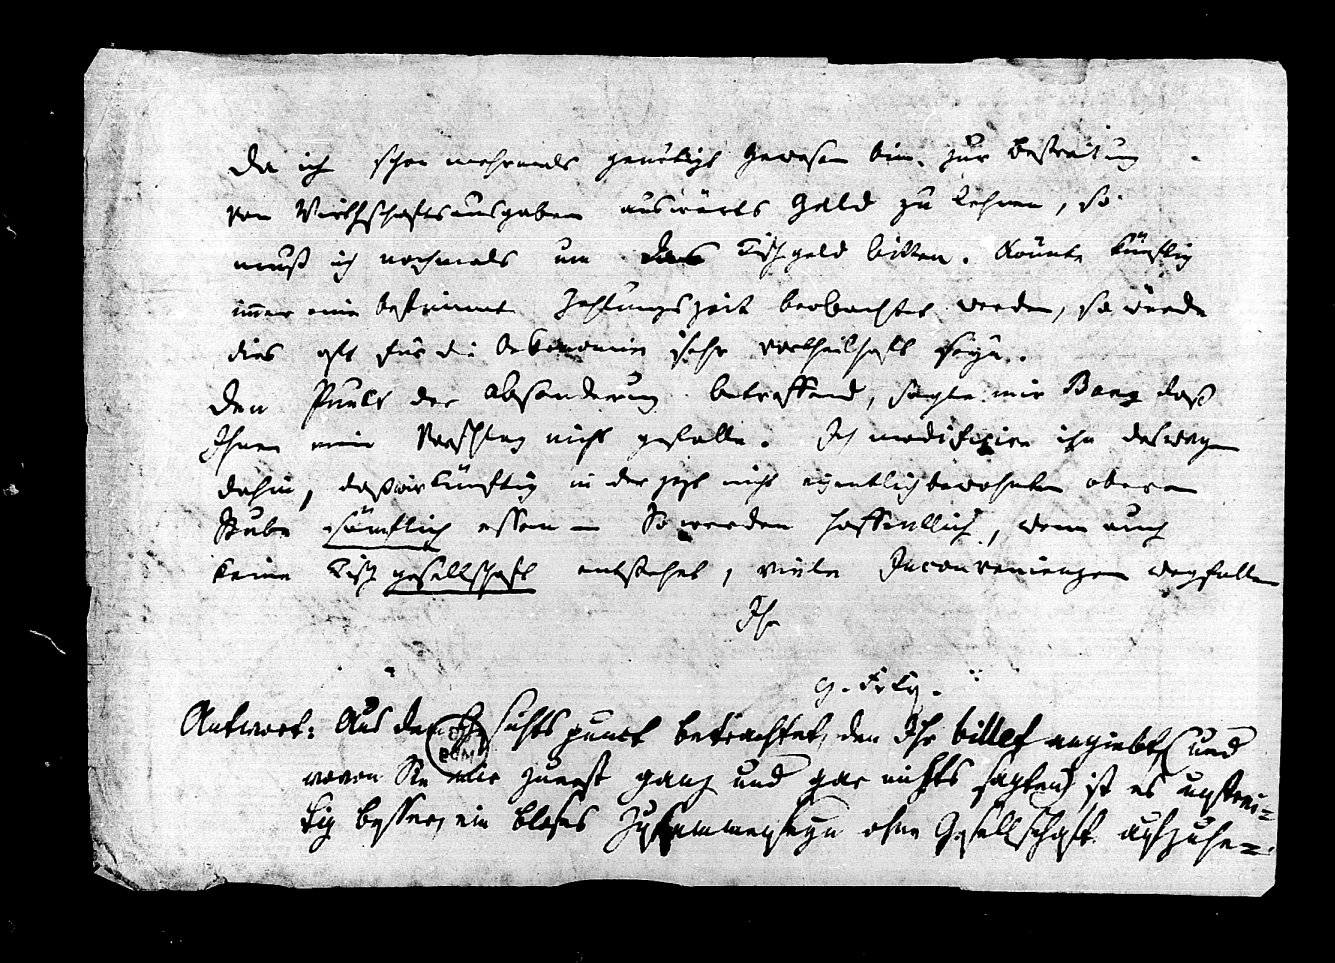 Da ich schon mehrmals genöthigt gewesen bin, zur Bestreitung
von Wirthschaftsausgaben auswärts Geld zu lehnen, so
muß ich nochmals um das Tischgeld bitten. Könnte künftig
immer eine bestimmte Zahlungszeit beobachtet werden, so würde
dies oft für die Oekonomie sehr vortheilhaft seyn.
Den Punct der Absonderung betreffend, sagte mir Barez daß
Ihnen mein Vorschlag nicht gefalle. Ich modifizire ihn deswegen
dahin, daß wir künftig in der jezt nicht eigentlich bewohnten oberen
Stube sämtlich essen – So werden hoffentlich, wenn auch
keine Tischgesellschaft entstehet, viele Inconvenienzen wegfallen
Ihr
Antwort: Aus dem Gesichtspunct betrachtet, den Ihr billet angiebt, (und
wovon Sie mir zuerst ganz und gar nichts sagten) ist es unstrei=
tig besser, ein bloses Zusammenseyn ohne Gesellschaft aufzuhe=